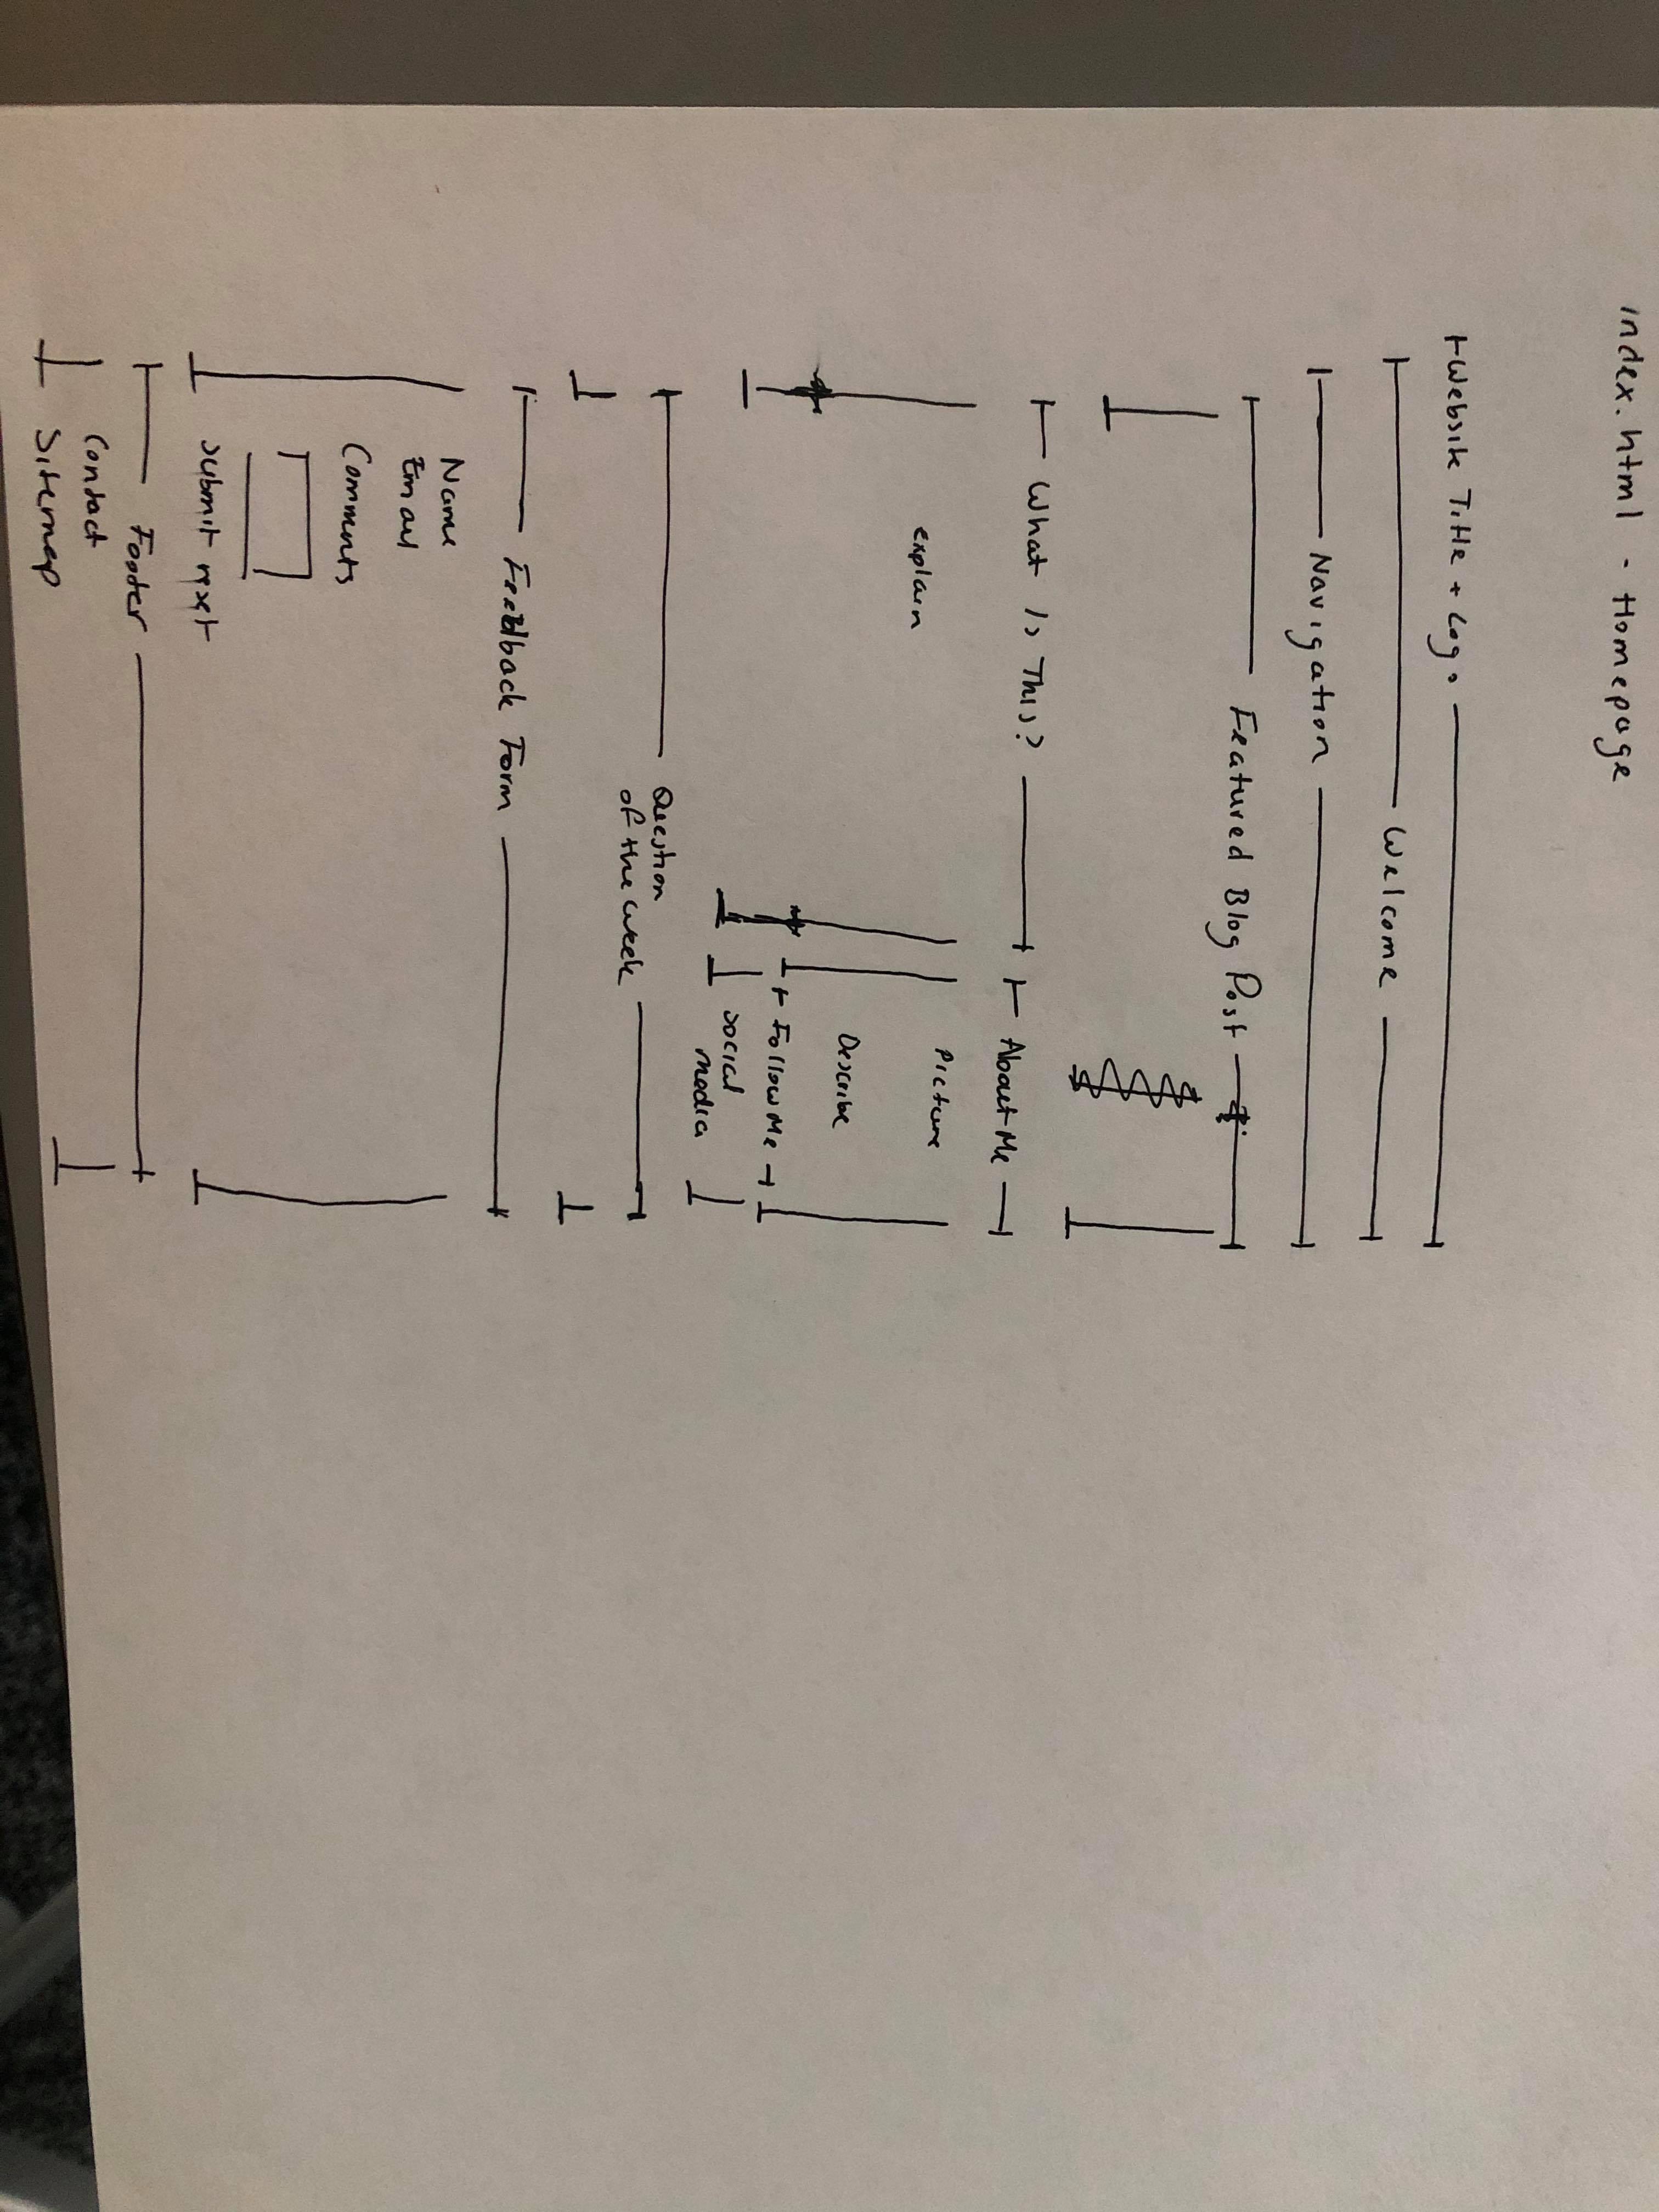 index.html - Homepage
Website Title + Logo
Welcome
Navigation
Featured Blog Post
What Is This?
About Me
explain
Picture
Describe
Follow Me
social
media
Question
of the week
Feedback Form
Name
Email
Comments
submit reset
Footer
Contact
Sitemap